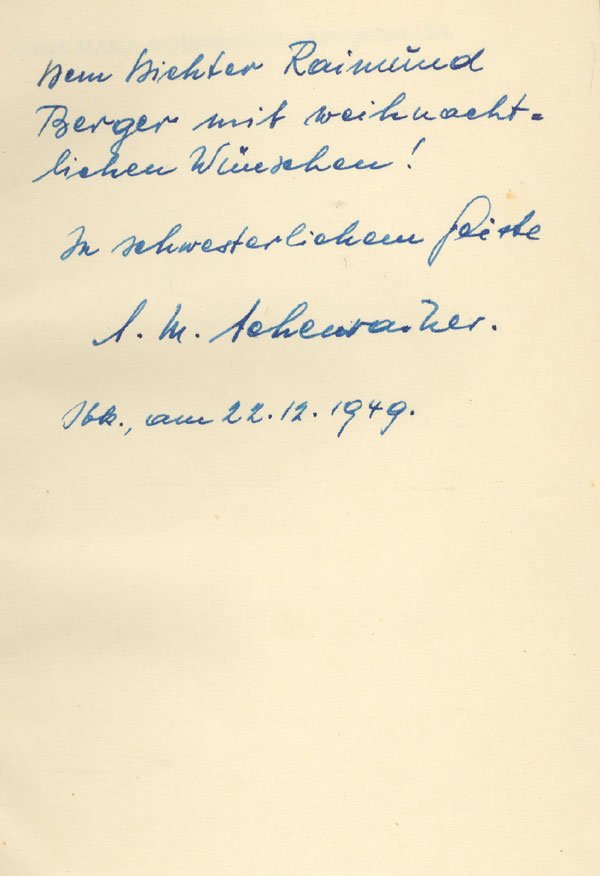 Dem Dichter Raimund
Berger mit weihnacht-
lichen Wünschen!
In schwesterlichem Geiste
A. M. Achenrainer.
Ibk., am 22.12.1949.